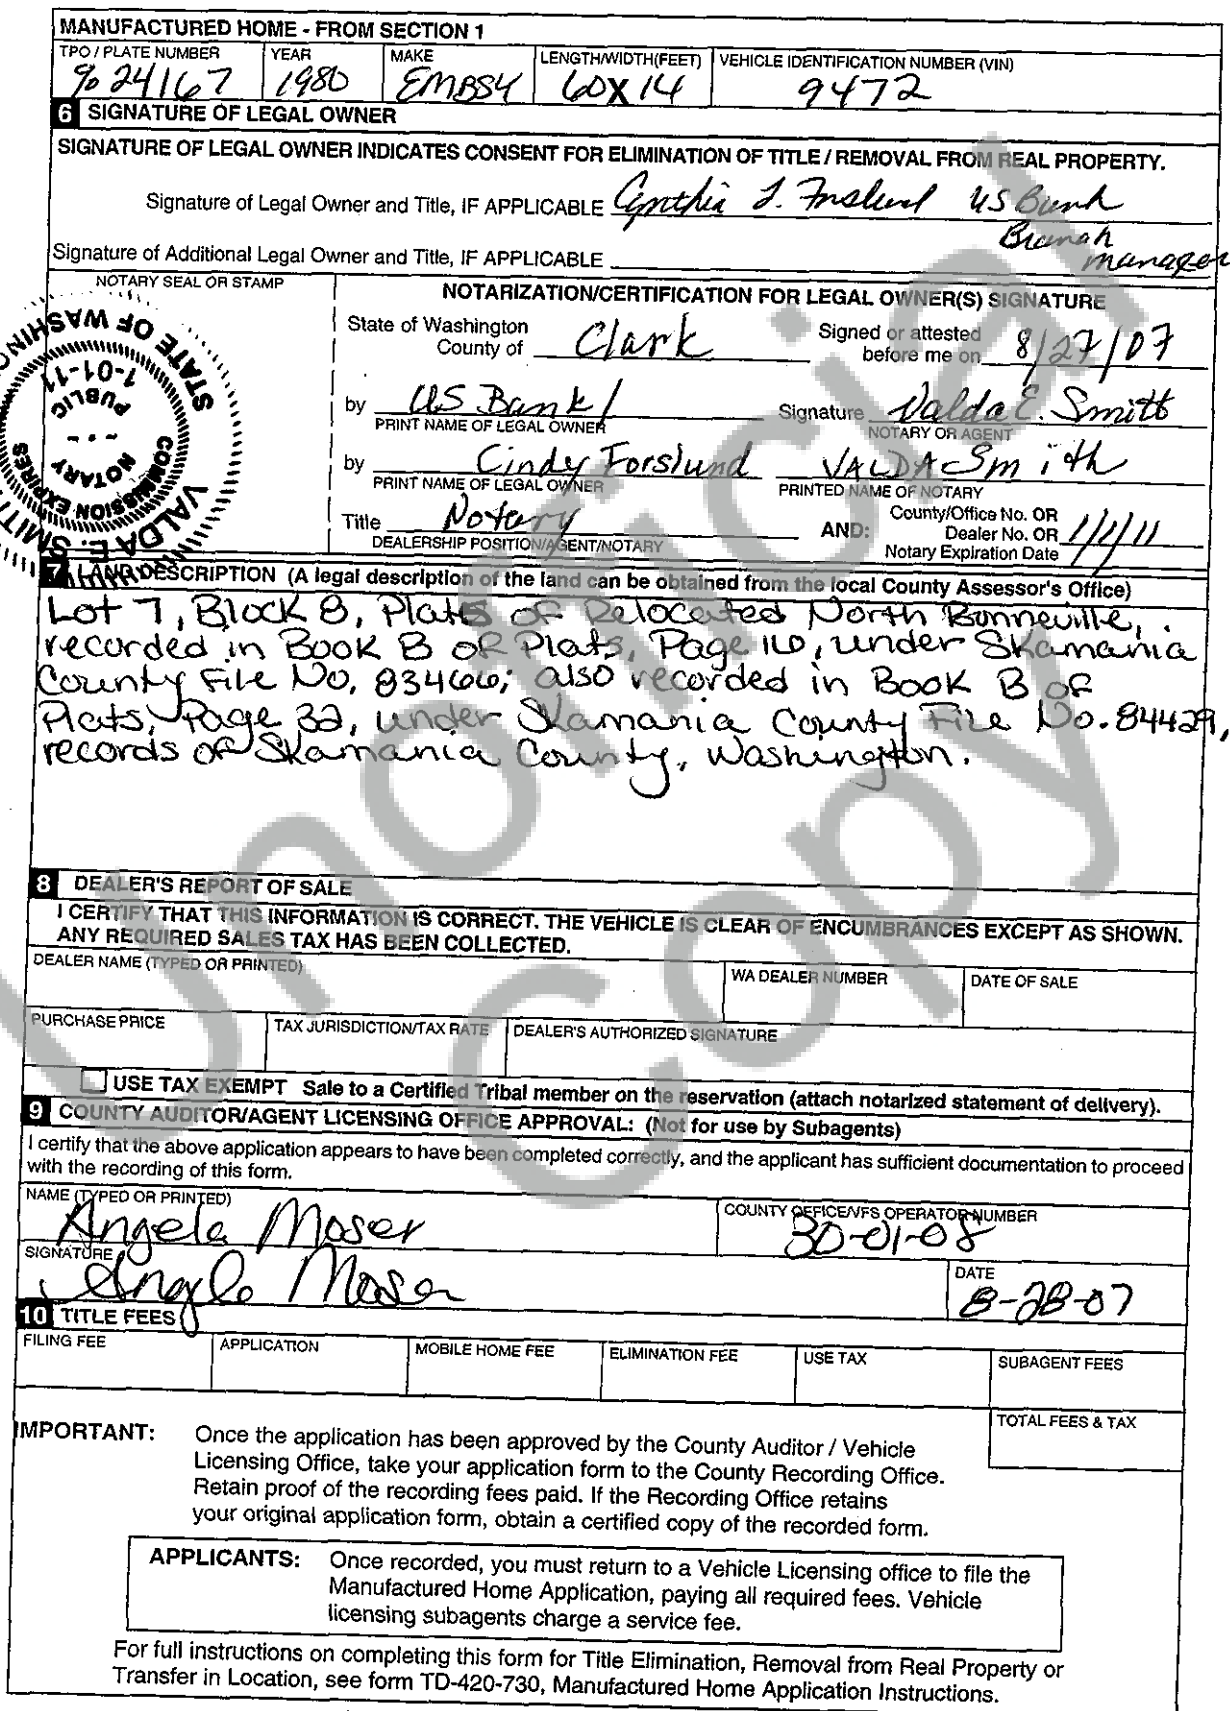 MANUFACTURED HOME - FROM SECTION 1
TPO / PLATE NUMBER YEAR MAKE LENGTH/WIDTH(FEET) VEHICLE IDENTIFICATION NUMBER (VIN)
% 24167 1980 EMBSY 60X14 9472
6 SIGNATURE OF LEGAL OWNER
SIGNATURE OF LEGAL OWNER INDICATES CONSENT FOR ELIMINATION OF TITLE / REMOVAL FROM REAL PROPERTY.
Signature of Legal Owner and Title, IF APPLICABLE US Bank
Branch
manager
Signature of Additional Legal Owner and Title, IF APPLICABLE
NOTARY SEAL OR STAMP NOTARIZATION/CERTIFICATION FOR LEGAL OWNER(S) SIGNATURE
State of Washington Signed or attested
County of Clark before me on 8/27/07
by US Bank/ Signature Valda E. Smith
PRINT NAME OF LEGAL OWNER NOTARY OR AGENT
by Cindy Forslund VALDA Smith
PRINT NAME OF LEGAL OWNER PRINTED NAME OF NOTARY
County/Office No. OR
Title Notary AND: Dealer No. OR 1/1/11
DEALERSHIP POSITION/AGENT/NOTARY Notary Expiration Date
VALDA E. SMITH
COMMISSION EXPIRES
NOTARY
PUBLIC
1-01-11
STATE OF WASHINGTON
7 LAND DESCRIPTION (A legal description of the land can be obtained from the local County Assessor's Office)
Lot 7, Block 8, Plats of Relocated North Bonneville,
recorded in Book B of Plats, Page 16, under Skamania
County File No. 83466; also recorded in Book B of
Plats, Page 32, under Skamania County File No. 84429,
records of Skamania County, Washington.
8 DEALER'S REPORT OF SALE
I CERTIFY THAT THIS INFORMATION IS CORRECT. THE VEHICLE IS CLEAR OF ENCUMBRANCES EXCEPT AS SHOWN.
ANY REQUIRED SALES TAX HAS BEEN COLLECTED.
DEALER NAME (TYPED OR PRINTED) WA DEALER NUMBER DATE OF SALE
PURCHASE PRICE TAX JURISDICTION/TAX RATE DEALER'S AUTHORIZED SIGNATURE
USE TAX EXEMPT Sale to a Certified Tribal member on the reservation (attach notarized statement of delivery).
9 COUNTY AUDITOR/AGENT LICENSING OFFICE APPROVAL: (Not for use by Subagents)
I certify that the above application appears to have been completed correctly, and the applicant has sufficient documentation to proceed
with the recording of this form.
NAME (TYPED OR PRINTED) COUNTY OFFICE/VFS OPERATOR NUMBER
Angela Moser 30-01-08
SIGNATURE DATE
Angela Moser 8-28-07
10 TITLE FEES
FILING FEE APPLICATION MOBILE HOME FEE ELIMINATION FEE USE TAX SUBAGENT FEES
TOTAL FEES & TAX
IMPORTANT: Once the application has been approved by the County Auditor / Vehicle
Licensing Office, take your application form to the County Recording Office.
Retain proof of the recording fees paid. If the Recording Office retains
your original application form, obtain a certified copy of the recorded form.
APPLICANTS: Once recorded, you must return to a Vehicle Licensing office to file the
Manufactured Home Application, paying all required fees. Vehicle
licensing subagents charge a service fee.
For full instructions on completing this form for Title Elimination, Removal from Real Property or
Transfer in Location, see form TD-420-730, Manufactured Home Application Instructions.
Unofficial
Copy